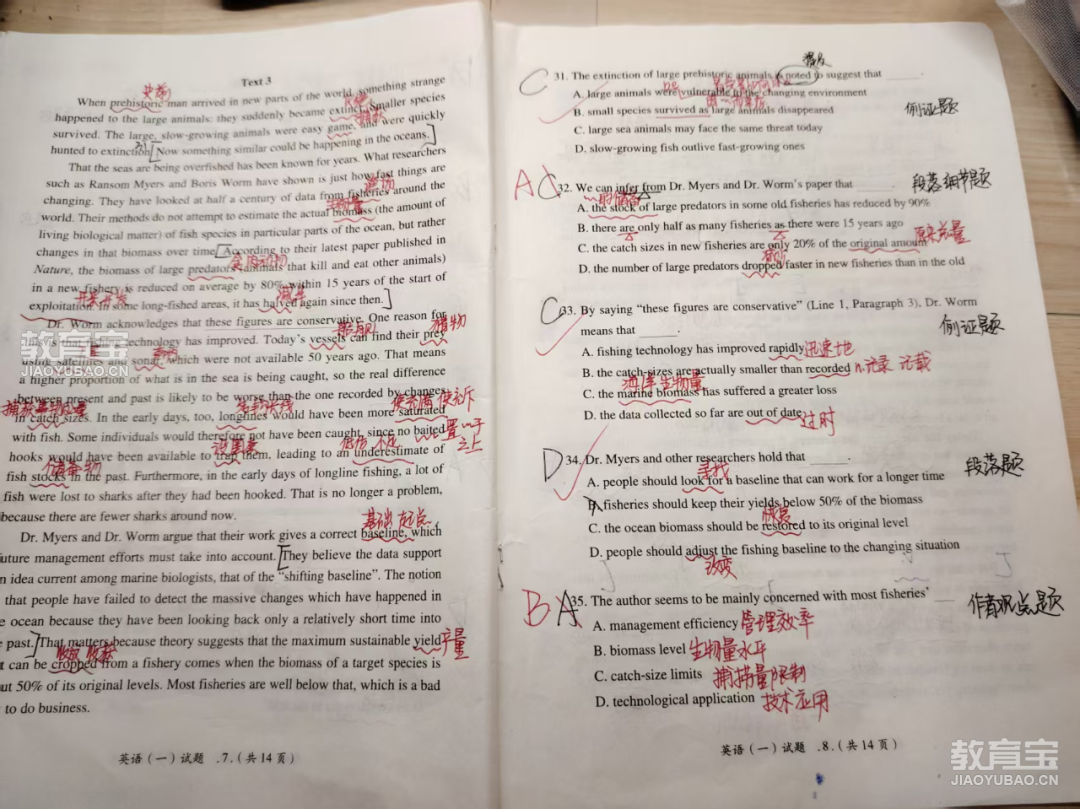 Text 3
史前
When prehistoric man arrived in new parts of the world, something strange
happened to the large animals: they suddenly became extinct. Smaller species
survived. The large, slow-growing animals were easy game, and were quickly
hunted to extinction. Now something similar could be happening in the oceans.
That the seas are being overfished has been known for years. What researchers
such as Ransom Myers and Boris Worm have shown is just how fast things are
changing. They have looked at half a century of data from fisheries around the
world. Their methods do not attempt to estimate the actual biomass (the amount of
living biological matter) of fish species in particular parts of the ocean, but rather
changes in that biomass over time. According to their latest paper published in
Nature, the biomass of large predators (animals that kill and eat other animals)
in a new fishery is reduced on average by 80% within 15 years of the start of
exploitation. In some long-fished areas, it has halved again since then.
Dr. Worm acknowledges that these figures are conservative. One reason for
this is that fishing technology has improved. Today's vessels can find their prey
猎物
using satellites and sonar, which were not available 50 years ago. That means
a higher proportion of what is in the sea is being caught, so the real difference
between present and past is likely to be worse than the one recorded by changes
in catch sizes. In the early days, too, longlines would have been more saturated
with fish. Some individuals would therefore not have been caught, since no baited
置以于
之上
hooks would have been available to trap them, leading to an underestimate of
fish stocks in the past. Furthermore, in the early days of longline fishing, a lot of
fish were lost to sharks after they had been hooked. That is no longer a problem,
because there are fewer sharks around now.
基础 起点
Dr. Myers and Dr. Worm argue that their work gives a correct baseline, which
uture management efforts must take into account. They believe the data support
n idea current among marine biologists, that of the "shifting baseline". The notion
that people have failed to detect the massive changes which have happened in
e ocean because they have been looking back only a relatively short time into
e past. That matters because theory suggests that the maximum sustainable yield
产量
t can be cropped from a fishery comes when the biomass of a target species is
ut 50% of its original levels. Most fisheries are well below that, which is a bad
to do business.
英语（一）试题 .7.（共14页）
C 31. The extinction of large prehistoric animals is noted to suggest that
A. large animals were vulnerable to the changing environment
B. small species survived as large animals disappeared
例证题
C. large sea animals may face the same threat today
D. slow-growing fish outlive fast-growing ones
A C 32. We can infer from Dr. Myers and Dr. Worm's paper that
段落细节题
A. the stock of large predators in some old fisheries has reduced by 90%
B. there are only half as many fisheries as there were 15 years ago
C. the catch sizes in new fisheries are only 20% of the original amount
D. the number of large predators dropped faster in new fisheries than in the old
C 33. By saying "these figures are conservative" (Line 1, Paragraph 3), Dr. Worm
means that
例证题
A. fishing technology has improved rapidly 迅速地
B. the catch-sizes are actually smaller than recorded n.记录 记载
海洋生物量
C. the marine biomass has suffered a greater loss
D. the data collected so far are out of date 过时
D 34. Dr. Myers and other researchers hold that
段落题
寻找
A. people should look for a baseline that can work for a longer time
B. fisheries should keep their yields below 50% of the biomass
恢复
C. the ocean biomass should be restored to its original level
D. people should adjust the fishing baseline to the changing situation
改变
B A 35. The author seems to be mainly concerned with most fisheries'
作者观点题
A. management efficiency 管理效率
B. biomass level 生物量水平
C. catch-size limits 捕捞量限制
D. technological application 技术应用
英语（一）试题 .8.（共14页）
教育宝
JIAOYUBAO.CN
教育宝
JIAOYUBAO.CN